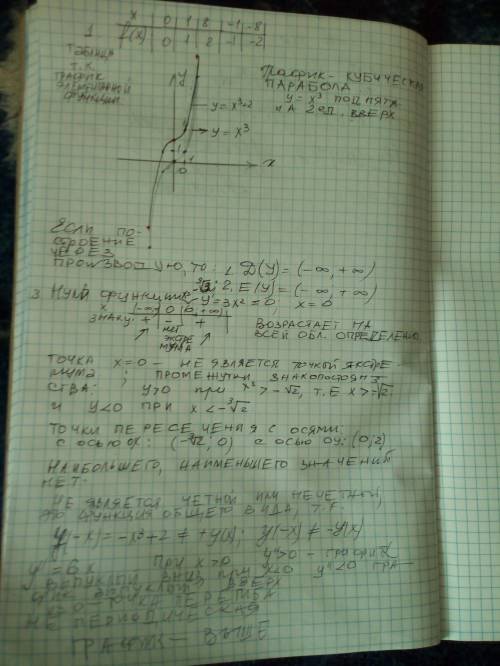 x 0 1 8 -1 -8
1 f(x) 0 1 2 -1 -2
таблица
т.к.
график
элементарной
функции
y
График - кубическая
парабола
y = x³ поднята
на 2 ед. вверх
y = x³+2
y = x³
1
-1
0
1
x
Если по-
строение
через
производную, то: 1. D(y) = (-∞, +∞)
2. E(y) = (-∞, +∞)
3. Нули функции: -∛2
y' = 3x² = 0; x = 0
(-∞ 0 (0, +∞)
знак y' + - +
нет
экстре
мума
возрастает на
всей обл. определения
точка x=0 - не является точкой экстре
мума; промежутки знакопостоян-
ства: y>0 при x³ > -√2, т.е x > -∛2;
и y<0 при x < -∛2
точки пересечения с осями:
с осью ох: (-∛2; 0) с осью оу: (0; 2)
наибольшего, наименьшего значений
нет.
не является четной или нечетной,
это функция общего вида, т.к.
y(-x) = -x³+2 ≠ +y(x); y(-x) ≠ -y(x)
y'' = 6x при x>0 y''>0 - график
выпуклый вниз, при x<0 y''<0 гра-
фик выпуклый вверх
x=0 - точка перегиба
не периодическая
график - выше